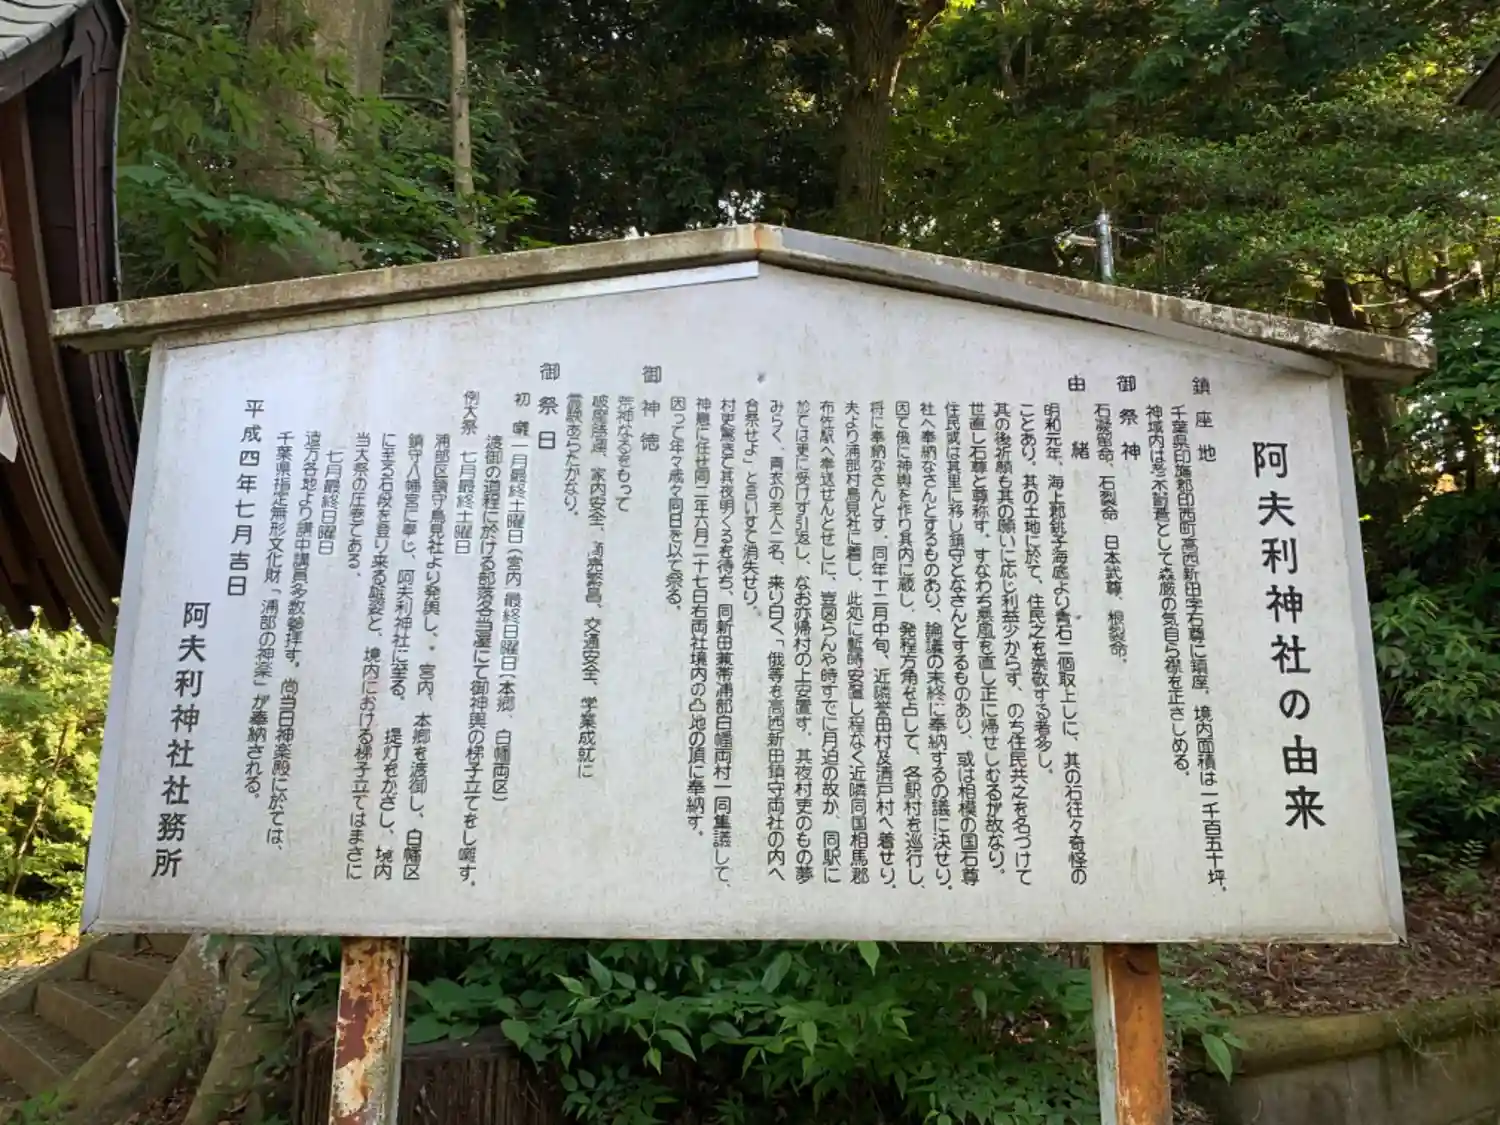 阿夫利神社の由来
鎮座地
千葉県印旛郡印西町高西新田字石尊に鎮座、境内面積は一千百五十坪、
神域内は老木耐蒼として森厳の気自ら襟を正さしめる。
御祭神
石凝留命、石裂命 日本武尊、根裂命、
由緒
明和元年、海上郡銚子海底より青石二個取上しに、其の石往々奇怪の
ことあり、其の土地に於て、住民之を崇敬する者多し、
其の後祈願も其の願いに応じ利益少からず、のち住民共之を名づけて
世直し石尊と尊称す、すなわち悪風を直し正に帰せしむるが故なり。
住民或は其里に移し鎮守となさんとするものあり、或は相模の国石尊
社へ奉納なさんとするものあり、論議の末終に奉納するの議に決せり。
因て俄に神輿を作り其内に蔵し、発程方角を占して、各駅村を巡行し、
将に奉納なさんとす、同年十二月中旬、近隣誉田村及清戸村へ着せり、
夫より浦部村鳥見社に着し、此処に暫時安置し程なく近隣同国相馬郡
布佐駅へ奉送せんとせしに、豈図らんや時すでに月迫の故か、同駅に
於ては更に受けず引返し、なお亦帰村の上安置す、其夜村吏のもの夢
みらく、青衣の老人二名、来り白く「俄等を高西新田鎮守両社の内へ
合祭せよ」と言いすて消失せり、
村吏驚きて其夜明くるを待ち、同新田兼帯浦部白幡両村一同集議して、
神意に任せ同二年六月二十七日右両社境内の凸地の頂に奉納す。
因って年々歳々同日を以て祭る。
御神徳
荒神なるをもって
破魔誘運、家内安全、商売繁昌、交通安全、学業成就に
霊験あらたかなり。
御祭日
初囃 一月最終土曜日(宮内 最終日曜日(本郷、白幡両区)
渡御の道程に於ける部落各当屋にて御神輿の梯子立てをし囃す。
例大祭 七月最終土曜日
浦部区鎮守鳥見社より発輿し、、宮内、本郷を渡御し、白幡区
鎮守八幡宮に奉じ、阿夫利神社に至る、 提灯をかざし、境内
に至る石段を登り来る威姿と、境内における梯子立てはまさに
当大祭の圧巻である、
七月最終日曜日
遠方各地より講中講員多数参拝す。尚当日神楽殿に於ては、
千葉県指定無形文化財「浦部の神楽」が奉納される。
平成四年七月吉日
阿夫利神社社務所